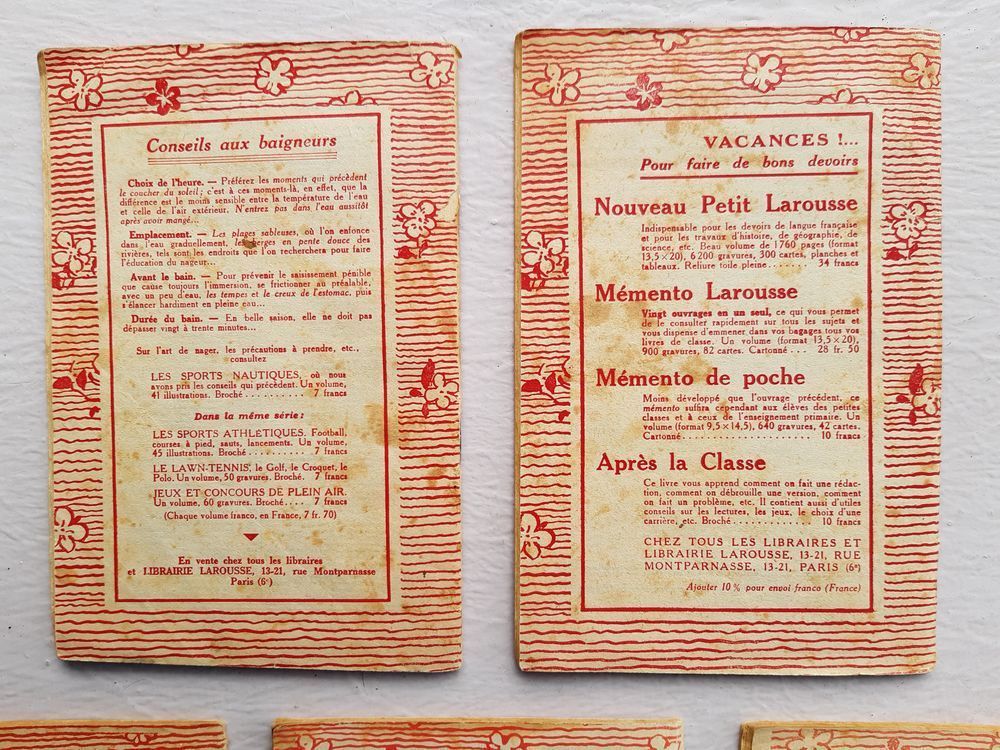 Conseils aux baigneurs
Choix de l'heure. — Préférez les moments qui précèdent
le coucher du soleil ; c'est à ces moments-là, en effet, que la
différence est le moins sensible entre la température de l'eau
et celle de l'air extérieur. N'entrez pas dans l'eau aussitôt
après avoir mangé...
Emplacement. — Les plages sableuses, où l'on enfonce
dans l'eau graduellement, les berges en pente douce des
rivières, tels sont les endroits que l'on recherchera pour faire
l'éducation du nageur...
Avant le bain. — Pour prévenir le saisissement pénible
que cause toujours l'immersion, se frictionner au préalable,
avec un peu d'eau, les tempes et le creux de l'estomac, puis
s'élancer hardiment en pleine eau...
Durée du bain. — En belle saison, elle ne doit pas
dépasser vingt à trente minutes...
Sur l'art de nager, les précautions à prendre, etc.,
consultez
LES SPORTS NAUTIQUES, où nous
avons pris les conseils qui précèdent. Un volume,
41 illustrations. Broché........... 7 francs
Dans la même série :
LES SPORTS ATHLÉTIQUES. Football,
courses à pied, sauts, lancements. Un volume,
45 illustrations. Broché........... 7 francs
LE LAWN-TENNIS, le Golf, le Croquet, le
Polo. Un volume, 50 gravures. Broché. 7 francs
JEUX ET CONCOURS DE PLEIN AIR.
Un volume, 60 gravures. Broché.... 7 francs
(Chaque volume franco, en France, 7 fr. 70)
En vente chez tous les libraires
et LIBRAIRIE LAROUSSE, 13-21, rue Montparnasse
Paris (6e)
VACANCES !...
Pour faire de bons devoirs
Nouveau Petit Larousse
Indispensable pour les devoirs de langue française
et pour les travaux d'histoire, de géographie, de
science, etc. Beau volume de 1760 pages (format
13,5×20), 6200 gravures, 300 cartes, planches et
tableaux. Reliure toile pleine....... 34 francs
Mémento Larousse
Vingt ouvrages en un seul, ce qui vous permet
de le consulter rapidement sur tous les sujets et
vous dispense d'emmener dans vos bagages tous vos
livres de classe. Un volume (format 13,5×20),
900 gravures, 82 cartes. Cartonné... 28 fr. 50
Mémento de poche
Moins développé que l'ouvrage précédent, ce
mémento suffira cependant aux élèves des petites
classes et à ceux de l'enseignement primaire. Un
volume (format 9,5×14,5), 640 gravures, 42 cartes.
Cartonné....................... 10 francs
Après la Classe
Ce livre vous apprend comment on fait une rédac-
tion, comment on débrouille une version, comment
on fait un problème, etc. Il contient aussi d'utiles
conseils sur les lectures, les jeux, le choix d'une
carrière, etc. Broché............. 10 francs
CHEZ TOUS LES LIBRAIRES ET
LIBRAIRIE LAROUSSE, 13-21, RUE
MONTPARNASSE, 13-21, PARIS (6e)
Ajouter 10 % pour envoi franco (France)